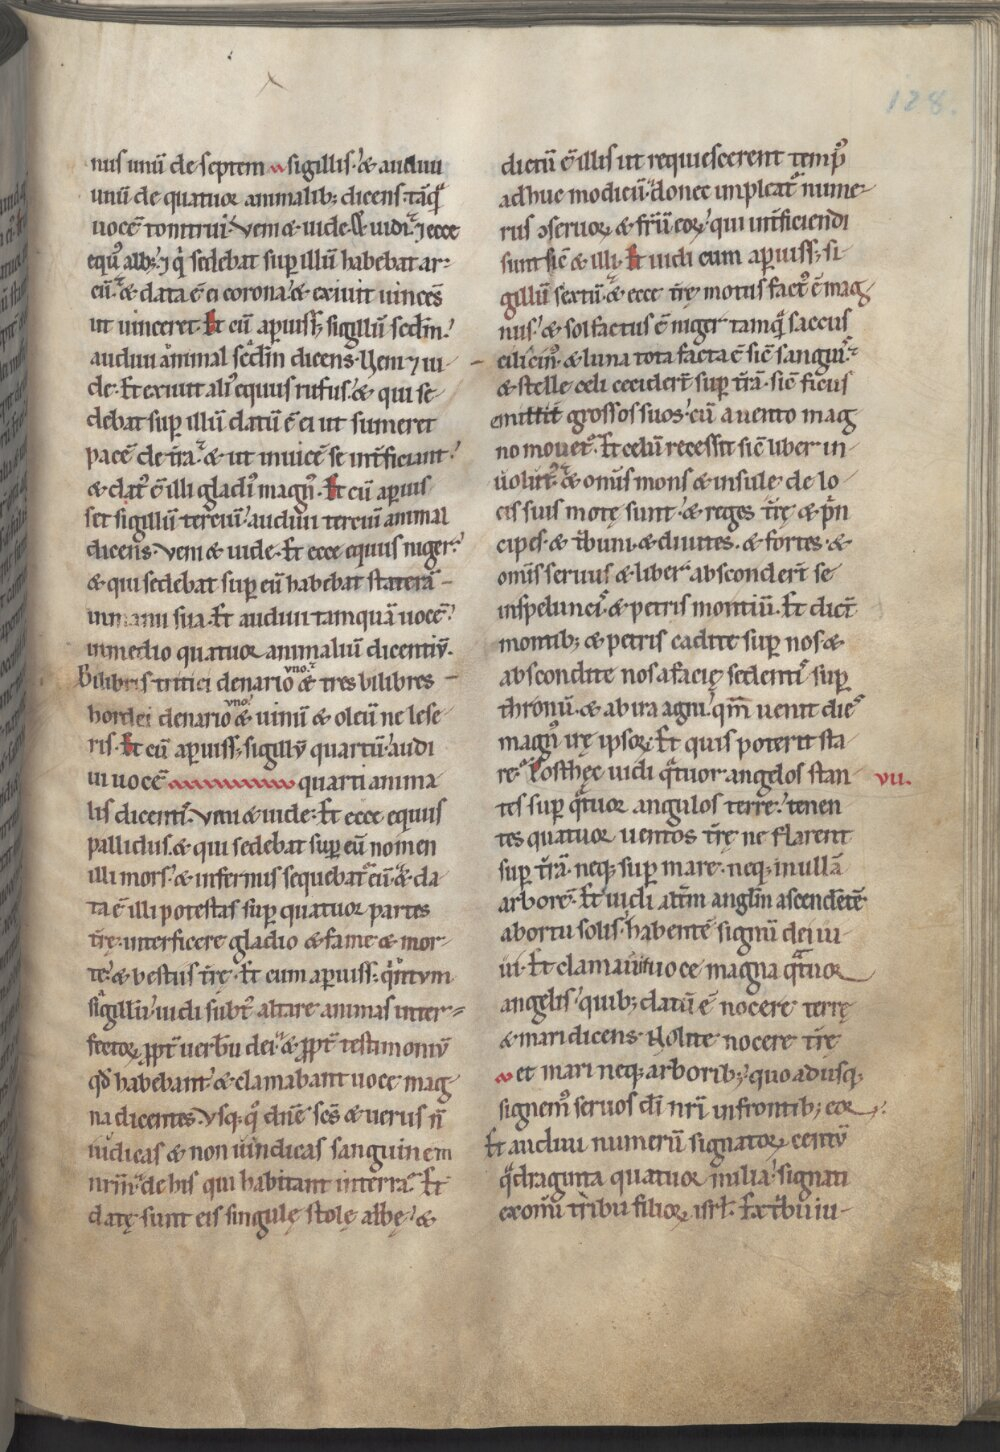 128.
nus unū de septem sigillis· & audiui
unū de quatuor animalib; dicens· tāq̄
uocē tonitrui· Veni & uide· Et uidi· ⁊ ecce
equꝰ albꝰ· ⁊ q̇ sedebat suꝑ illū habebat ar-
cū· & data ē ei corona· & exiuit uincēs
ut uinceret· Et cū aꝑuiss; sigillū scd̄m·
audiui animal scd̄m dicens· Veni ⁊ ui-
de· Et exiuit aliꝰ equus rufus· & qui se-
debat suꝑ illū datū ē ei ut sumeret
pacē de t̄ra· & ut inuicē se int̄ficiant·
& datꝰ ē illi gladiꝰ magnꝰ· Et cū aꝑuis
set sigillū terciū· audiui terciū animal
dicens· Veni & uide· Et ecce equus niger·
& qui sedebat suꝑ eū habebat staterā
in manu sua· Et audiui tamquā uocē
in medio quatuor animaliū dicentiū·
Bilibris tritici denario uno· & tres bilibres
hordei denario uno· & uinū & oleū ne lese
ris· Et cū aꝑuiss; sigillū quartū· audi
ui uocē quarti anima
lis dicentis· Veni & uide· Et ecce equus
pallidus· & qui sedebat suꝑ eū nomen
illi mors· & infernus sequebat̄ eū· & da
ta ē illi potestas suꝑ quatuor partes
t̄rę· interficere gladio & fame & mor-
te· & bestiis t̄rę· Et cum aꝑuiss; q̇ntum
sigillū· uidi subtꝰ altare animas inter-
fectoꝝ ꝓpt̄ uerbū dei· & ꝓpt̄ testimoniū
qd̄ habebant· & clamabant uoce mag
na dicentes· Vsq; qͦ dn̄e sc̄s & uerus n̄
iudicas & non uindicas sanguinem
nr̄m· de his qui habitant in terra· Et
datę sunt eis singulę stolę albę· &
dictū ē illis ut requiescerent tempꝰ
adhuc modicū· donec impleat̄ nume-
rus ɔseruoꝝ & fr̄ū eoꝝ· qui int̄ficiendi
sunt sic̄ & illi· Et uidi cum aꝑuiss; si-
gillū sextū· & ecce t̄re motus factꝰ ē mag
nus· & sol factus ē niger tamq̄ saccus
cilicinꝰ· & luna tota facta ē sic̄ sanguis·
& stelle celi cecider̄t suꝑ t̄rā· sic̄ ficus
emittit grossos suos· cū a uento mag
no mouet̄· Et celū recessit sic̄ liber in-
uolutꝰ· & om̄s mons & insule de lo
cis suis motę sunt· & reges t̄rę & p̄n
cipes· & t̄buni· & diuites· & fortes· &
om̄is seruus & liber absconder̄t se
in speluncis· & petris montiū· Et dict̄
montib; & petris cadite suꝑ nos &
abscondite nos a facię sedentis suꝑ
thronū· & ab ira agni· qm̄ uenit dies
magnꝰ irę ipsoꝝ· Et quis poterit sta
re· Posthęc uidi q̄tuor angelos stan vii.
tes suꝑ q̄tuor angulos terre· tenen
tes quatuor uentos t̄rę ne flarent
suꝑ t̄rā· neq; suꝑ mare· neq; in ullā
arborē· Et uidi alt̄m angl̄m ascendētē
ab ortu solis· habentē signū dei ui-
ui· Et clamauit uoce magna q̄tuor
angelis· quib; datū ē nocere terrę
& mari dicens· Nolite nocere t̄rę
et mari neq; arborib;· quo adusq;
signemꝰ seruos dī nr̄i in frontib; eoꝝ·
Et audiui numerū signatoꝝ centū
q̄draginta quatuor milia· signati
ex om̄i tribu filioꝝ isrl̄· Ex t̄bu iu-